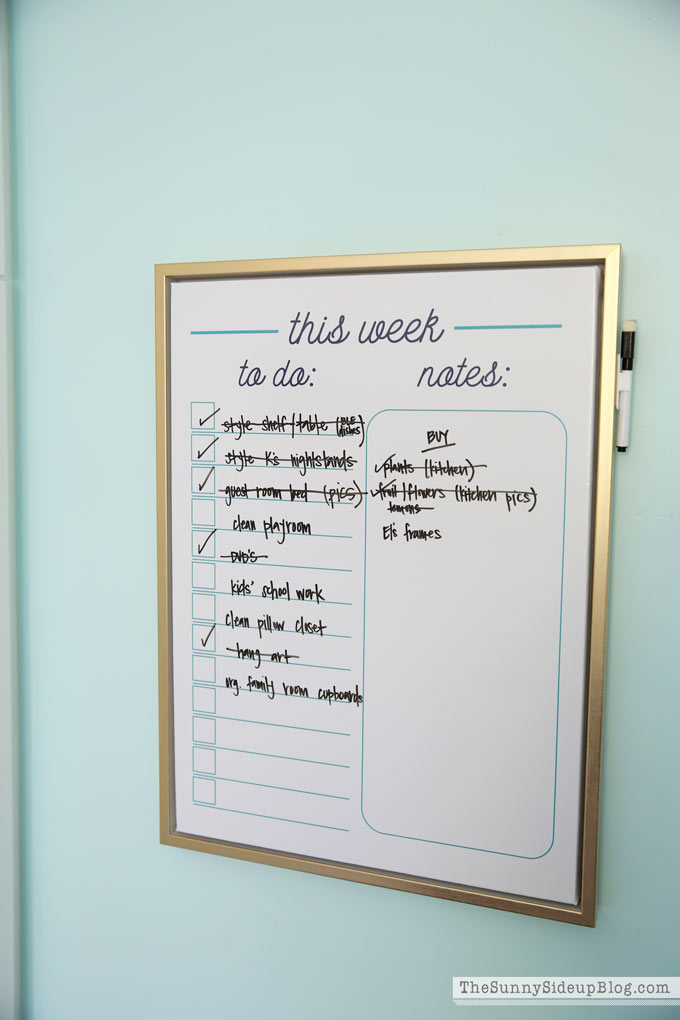 this week
to do:
notes:
style shelf/table (BLE dishes)
style K's nightstands
guest room bed (pics)
clean playroom
DVD'S
kids' school work
clean pillow closet
hang art
org. family room cupboards
BUY
plants (kitchen)
fruit/flowers (kitchen pics)
lemons
El's frames
TheSunnySideupBlog.com